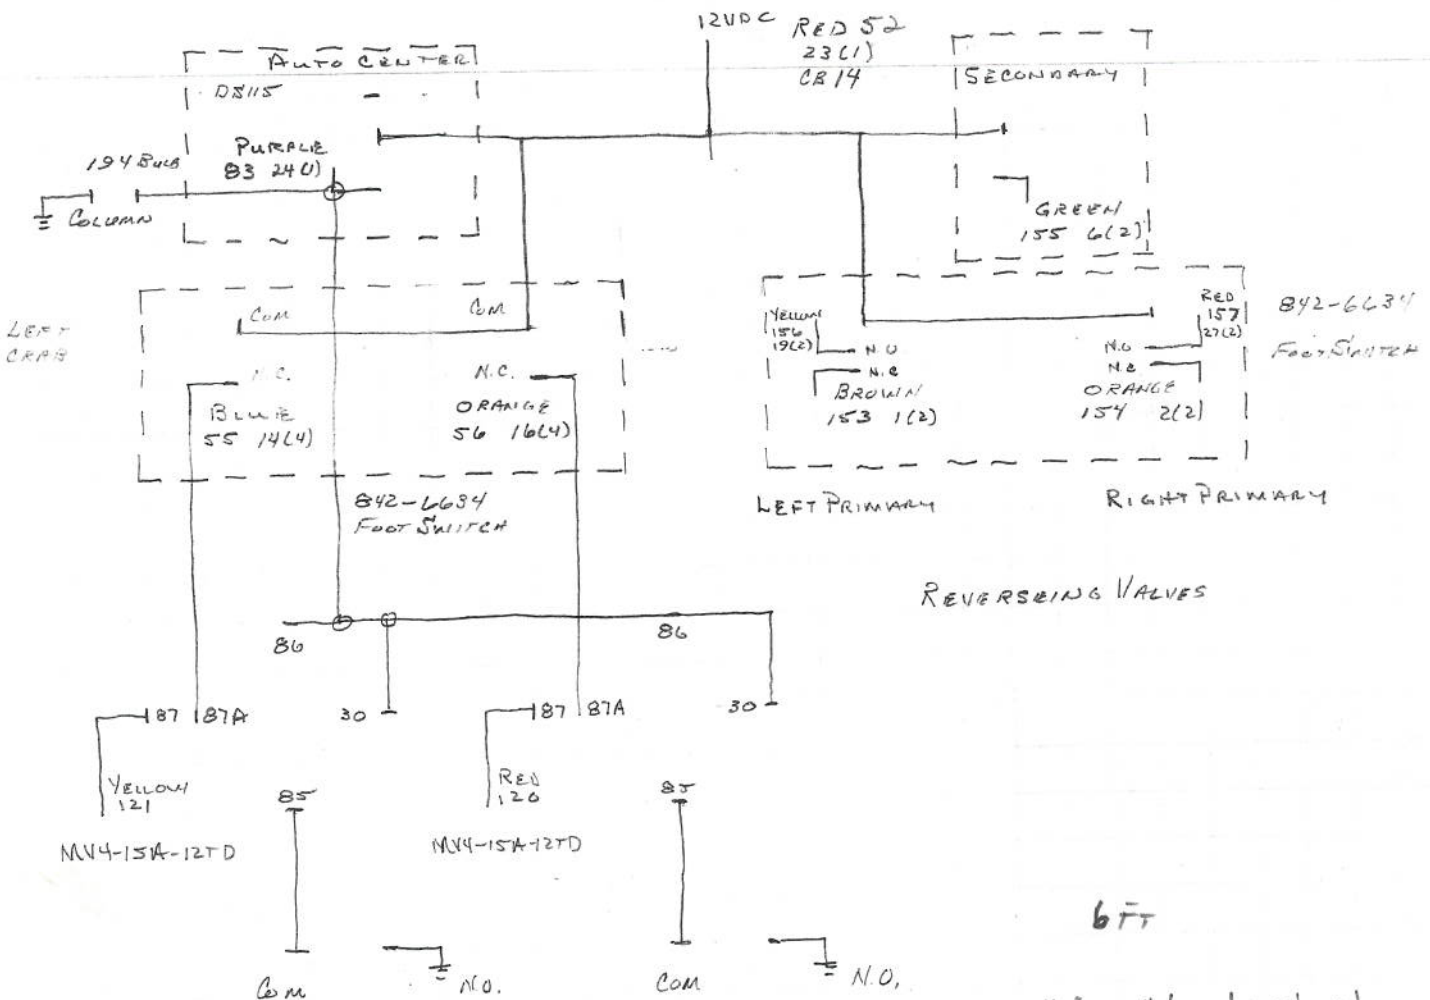 12VDC
RED 52
23(1)
CB 14
AUTO CENTER
DS115
SECONDARY
PURPLE
83 24(1)
194 BULB
COLUMN
GREEN
155 6(2)
LEFT
CRAB
COM
COM
N.C.
N.C.
BLUE
55 14(4)
ORANGE
56 16(4)
842-6634
FOOT SWITCH
YELLOW
156
19(2)
N.O
N.C
BROWN
153 1(2)
RED
157
27(2)
N.O
N.C
ORANGE
154 2(2)
842-6634
FOOT SWITCH
LEFT PRIMARY
RIGHT PRIMARY
REVERSEING VALVES
86
86
87
87A
30
87
87A
30
YELLOW
121
RED
120
85
85
MV4-15A-12TD
MV4-15A-12TD
6 FT
COM
N.O.
COM
N.O.